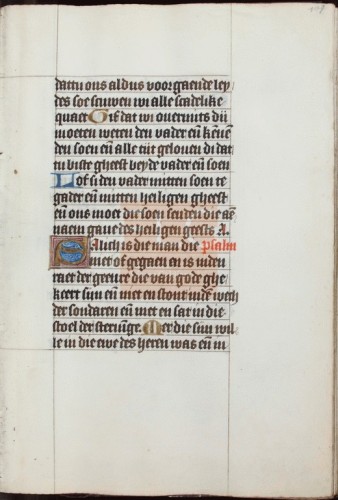 dattu ons aldus voorgaende ley
des soe scuwen wi alle scadelike
quaet Gif dat wi overmits dij
moeten weten den vader en̄ kēnē
den soen en̄ alle tijt geloven di dat
tu biste gheest beyde vader en̄ soen
Lof si den vader mitten soen te
gader en̄ mitten heiligen gheest
en̄ ons moet die soen senden die aē
naem gave des heiligen geests A.
Salich is die man die psalm
niet of gegaen en is inden
raet der geenre die van gode ghe
keert sijn en̄ niet en stont indē wech
der sondaren en̄ niet en sat in die
stoel der steruīge Mer die sijn wil
le in die ewe des heren was en̄ in